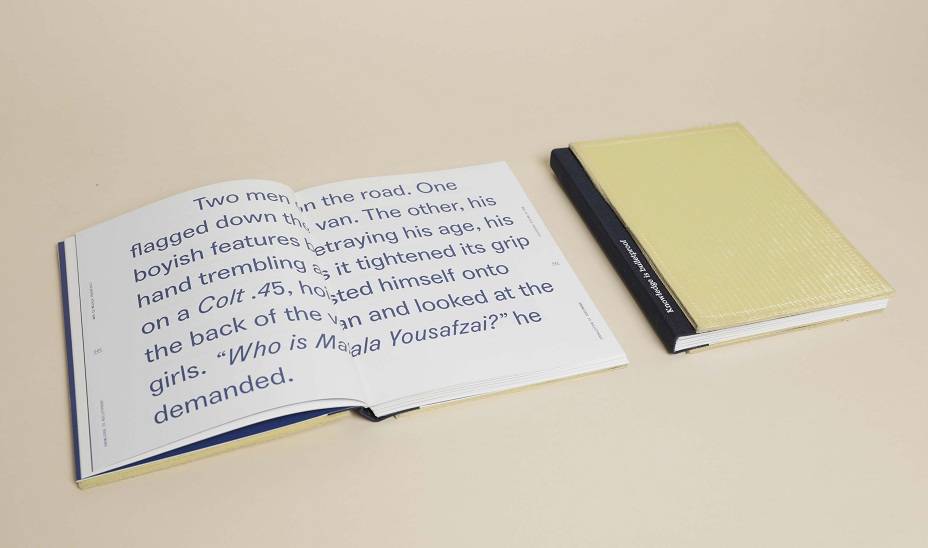 Two men on the road. One
flagged down the van. The other, his
boyish features betraying his age, his
hand trembling as it tightened its grip
on a Colt .45, hoisted himself onto
the back of the van and looked at the
girls. “Who is Malala Yousafzai?” he
demanded.
Knowledge is bulletproof